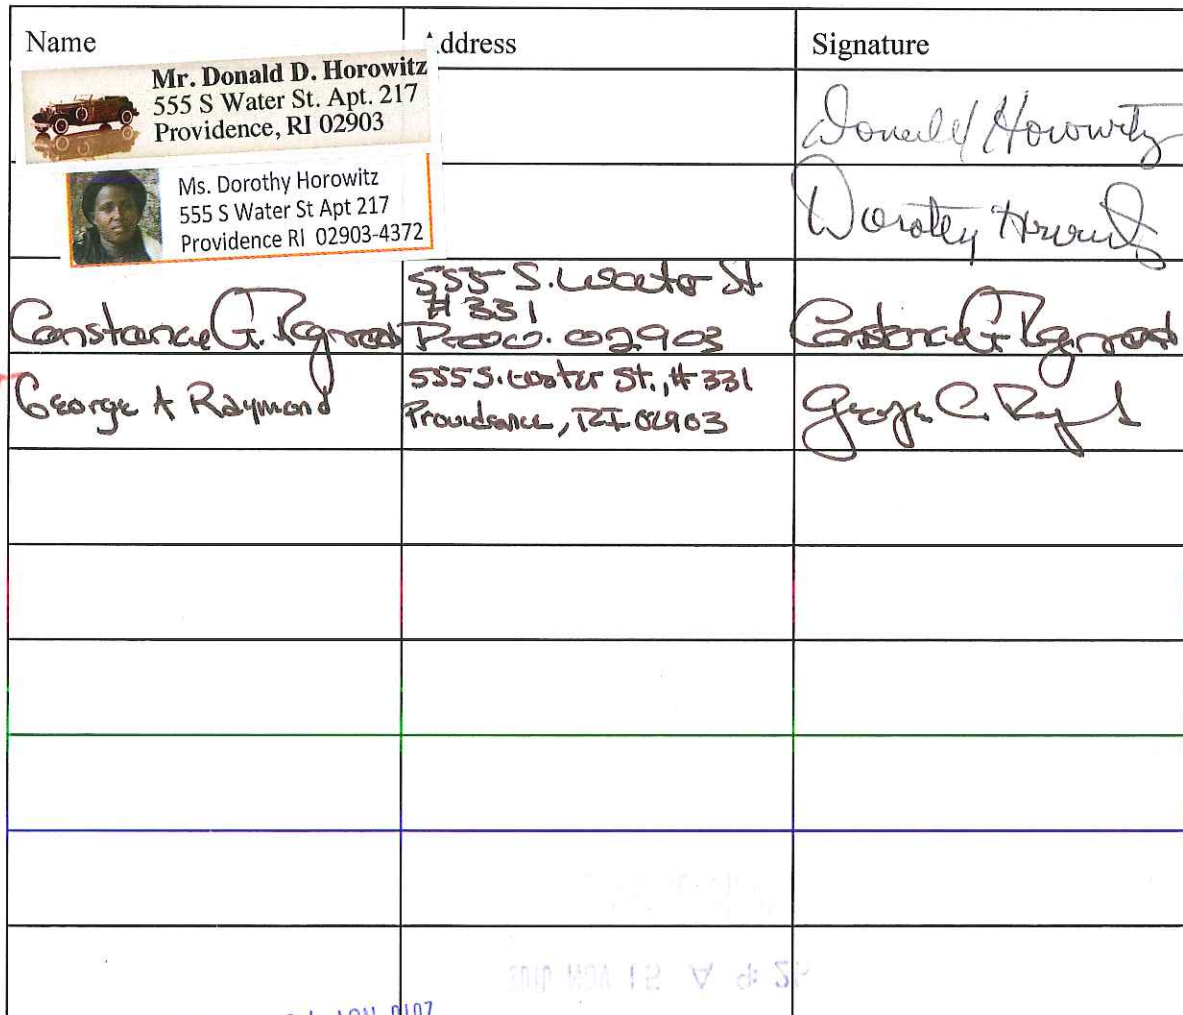 Name Address Signature
Mr. Donald D. Horowitz
555 S Water St. Apt. 217
Providence, RI 02903
Donald Horowitz
Ms. Dorothy Horowitz
555 S Water St Apt 217
Providence RI 02903-4372
Dorothy Horowitz
Constance G. Raymond
555 S. Water St
# 331
Prov. 02903
Constance G Raymond
George A Raymond
555 S. Water St., # 331
Providence, RI 02903
George A. Raymond